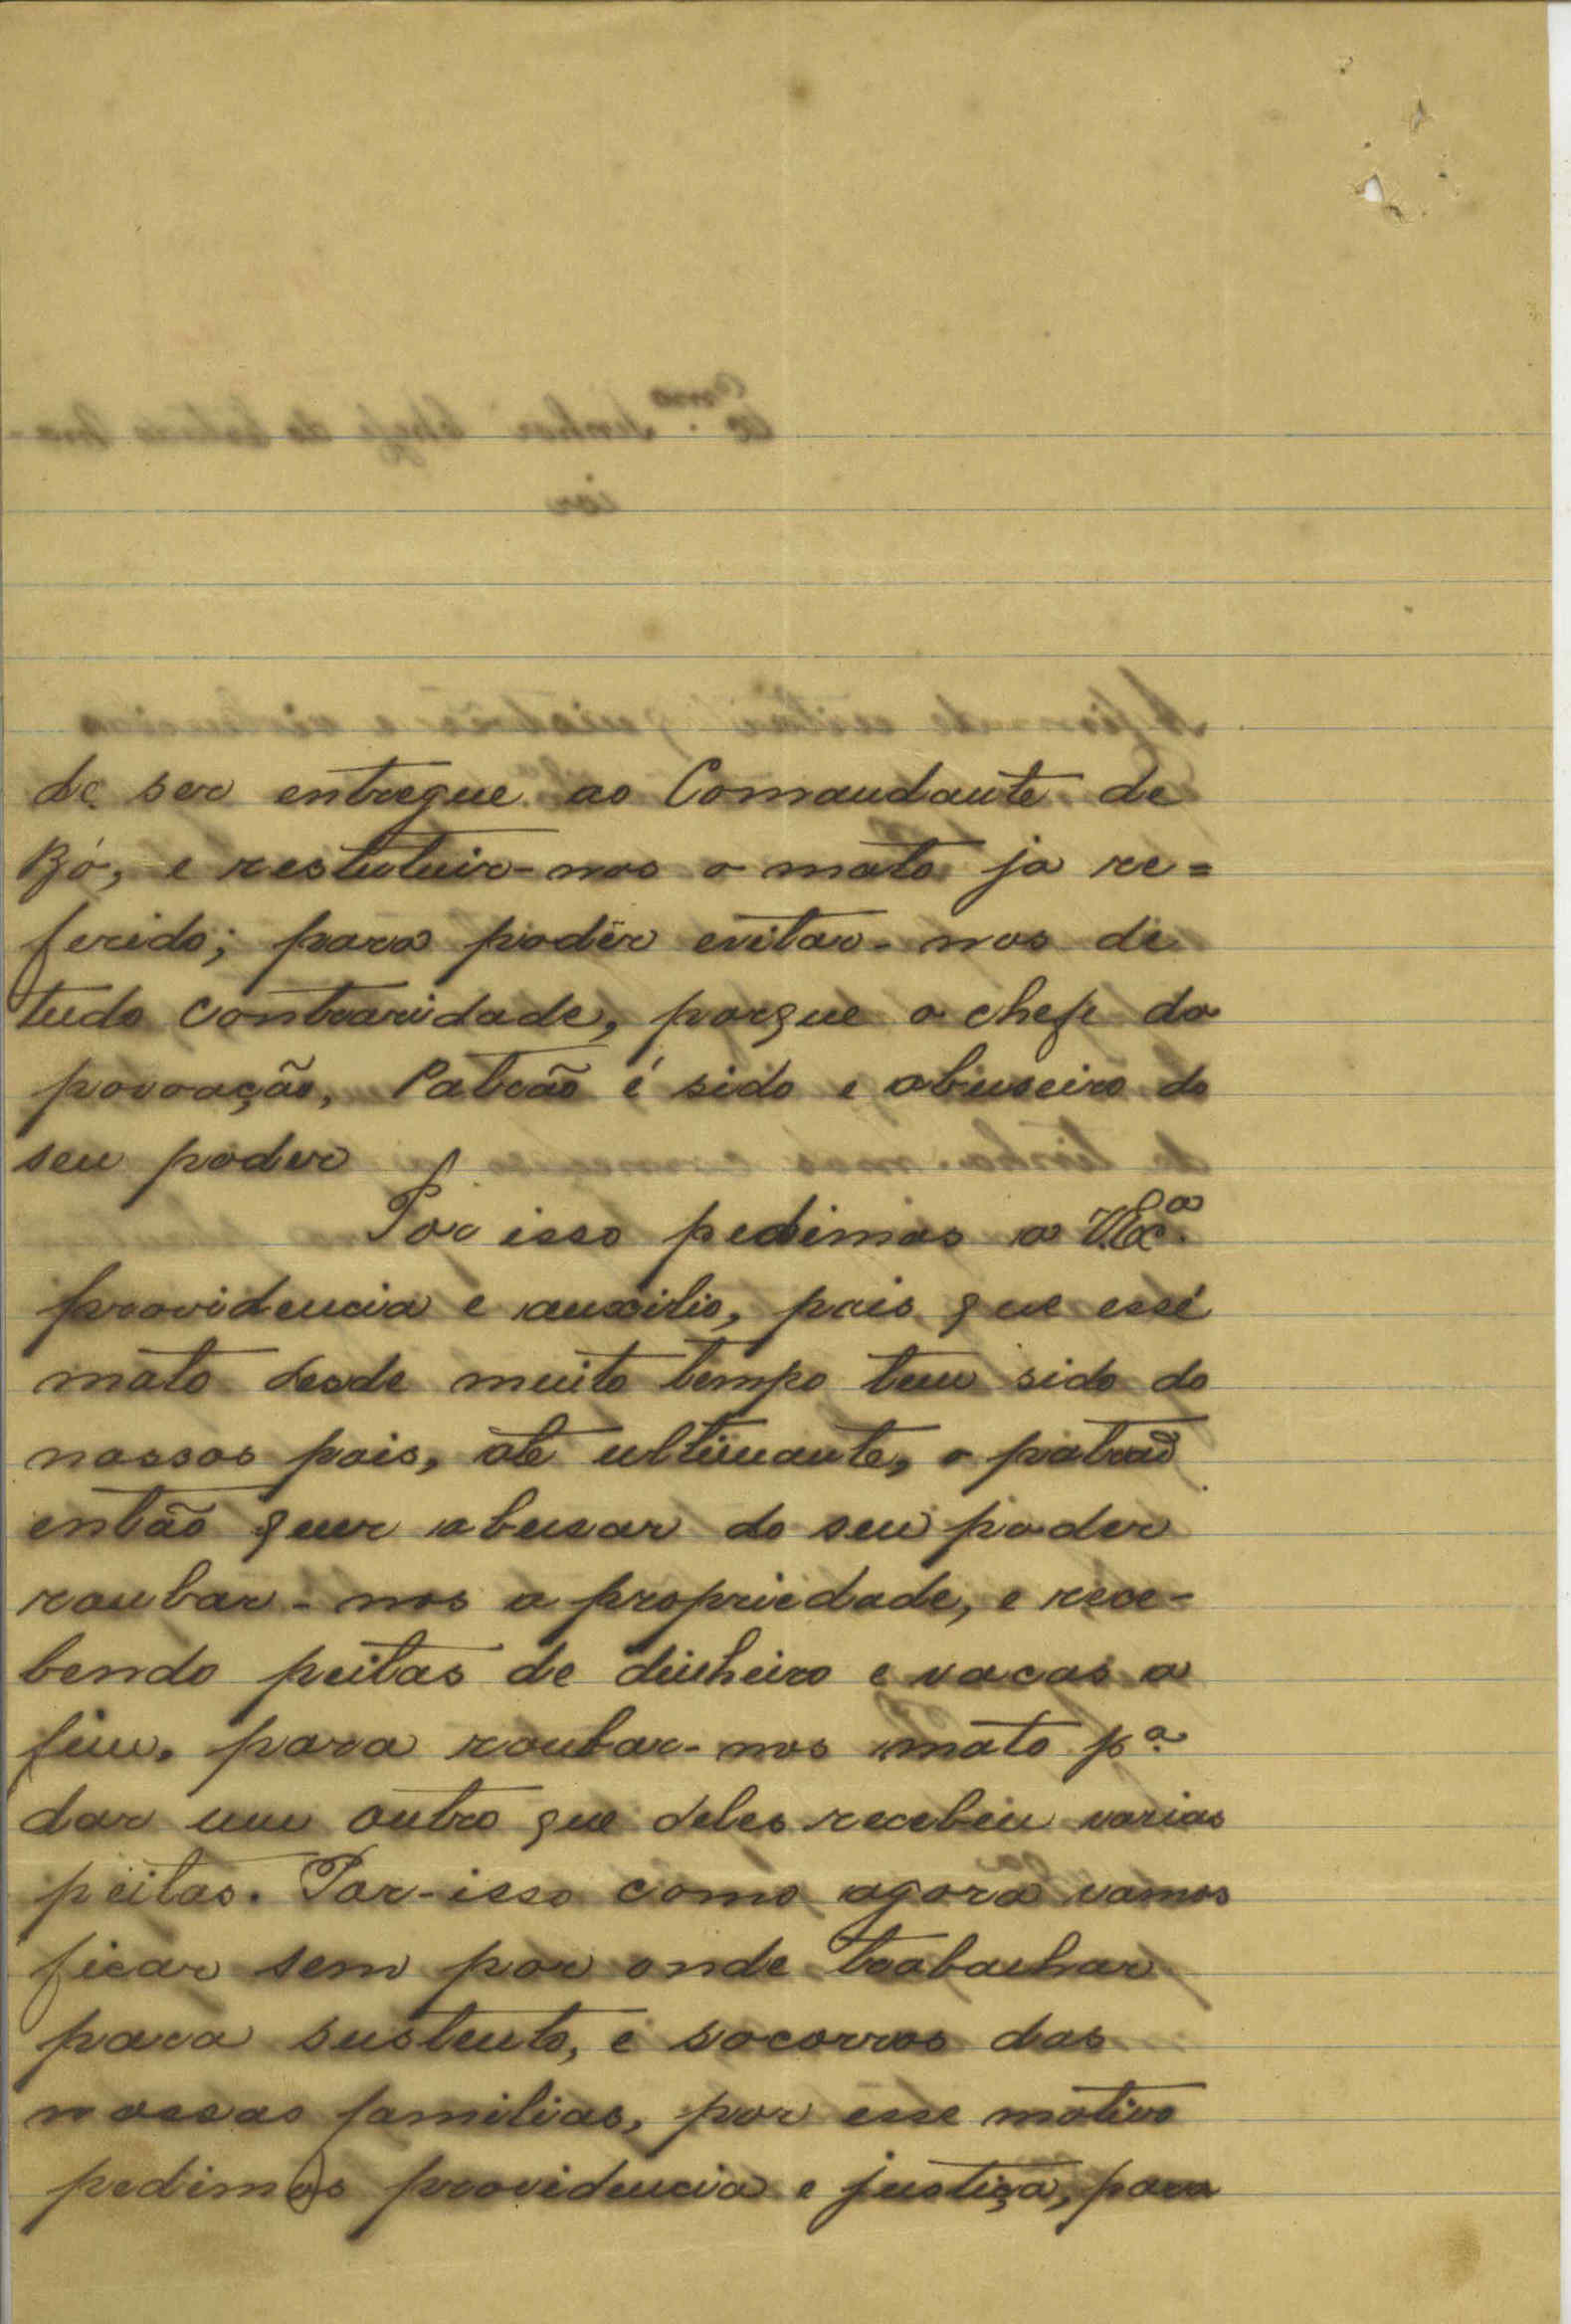 de ser entregue ao Comandante de
Bó, e restutuir-nos o mato ja re=
ferido; para podêr evitar-nos de
tudo contraridade, porque o chefe da
povoação, Patrão é sido e abuseiro do
seu poder
Por isso pedimos a V.Exª.
providencia e auxilio, pois que esse
mato desde muito tempo tem sido do
nossos pais, ate ultimante, o patrão
então quer abusar do seu poder
roubar-nos a propriedade, e rece-
bendo peitas de dinheiro e vacas a
fim. para roubar-nos mato pª
dar um outro que deles recebeu varias
peitas. Por-isso como agora vamos
ficar sem por onde trabalhar
para sustento, e socorros das
nossas familias, por esse motivo
pedimos providencia e justiça, para